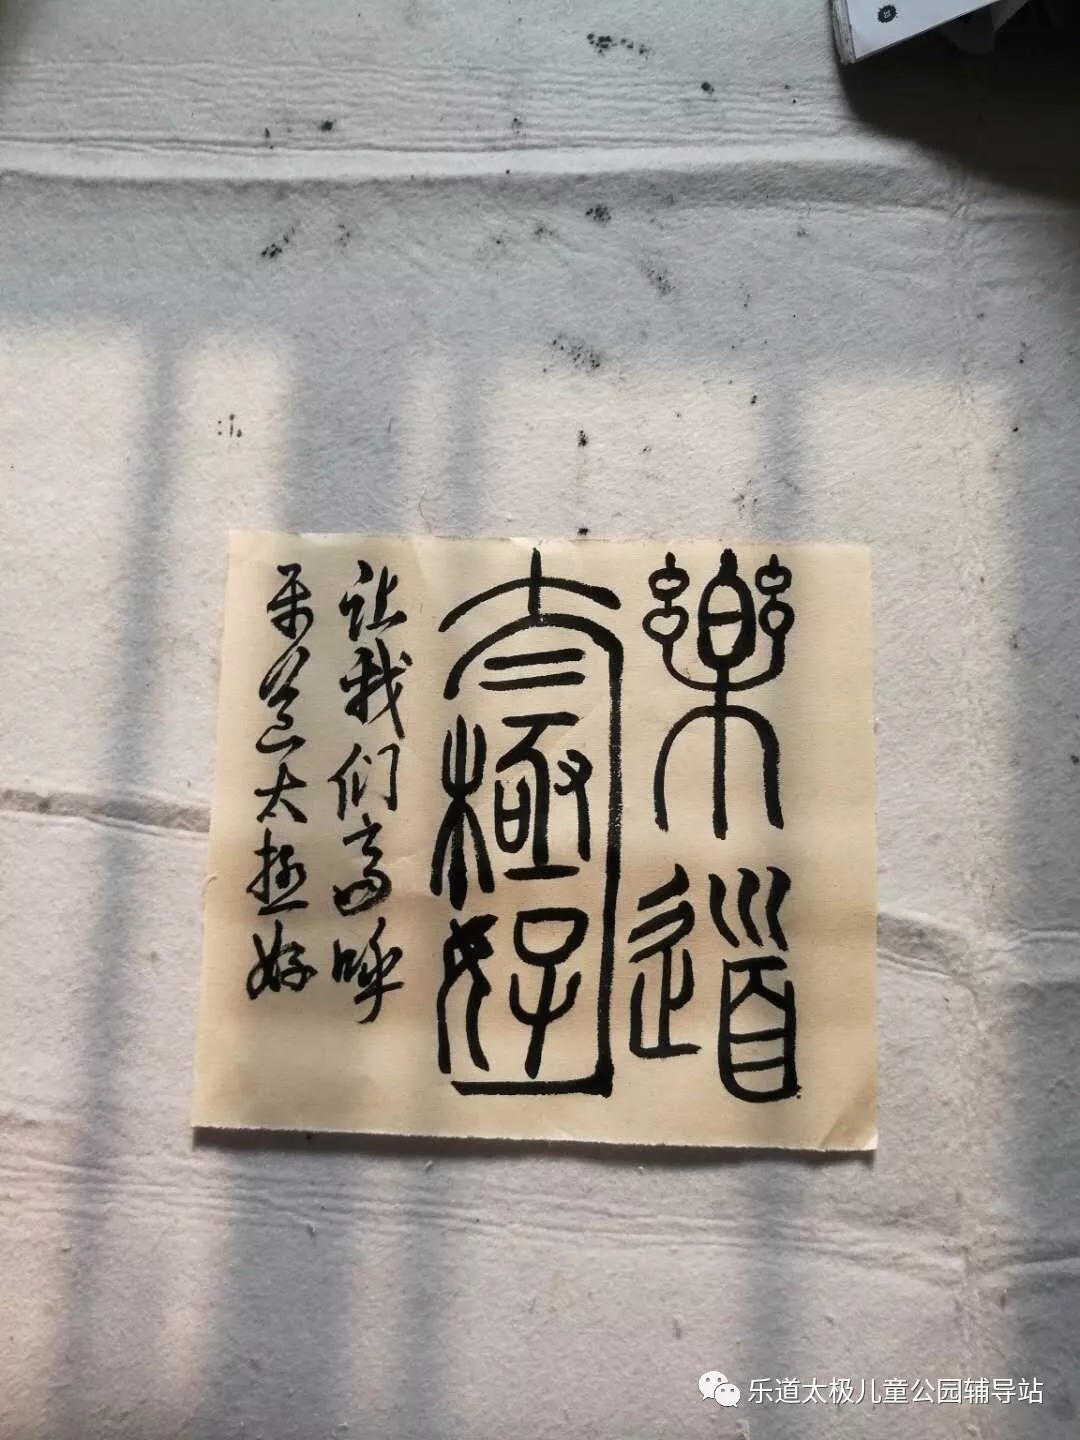 樂道
太極好
让我们高呼
乐道太极好
乐道太极儿童公园辅导站